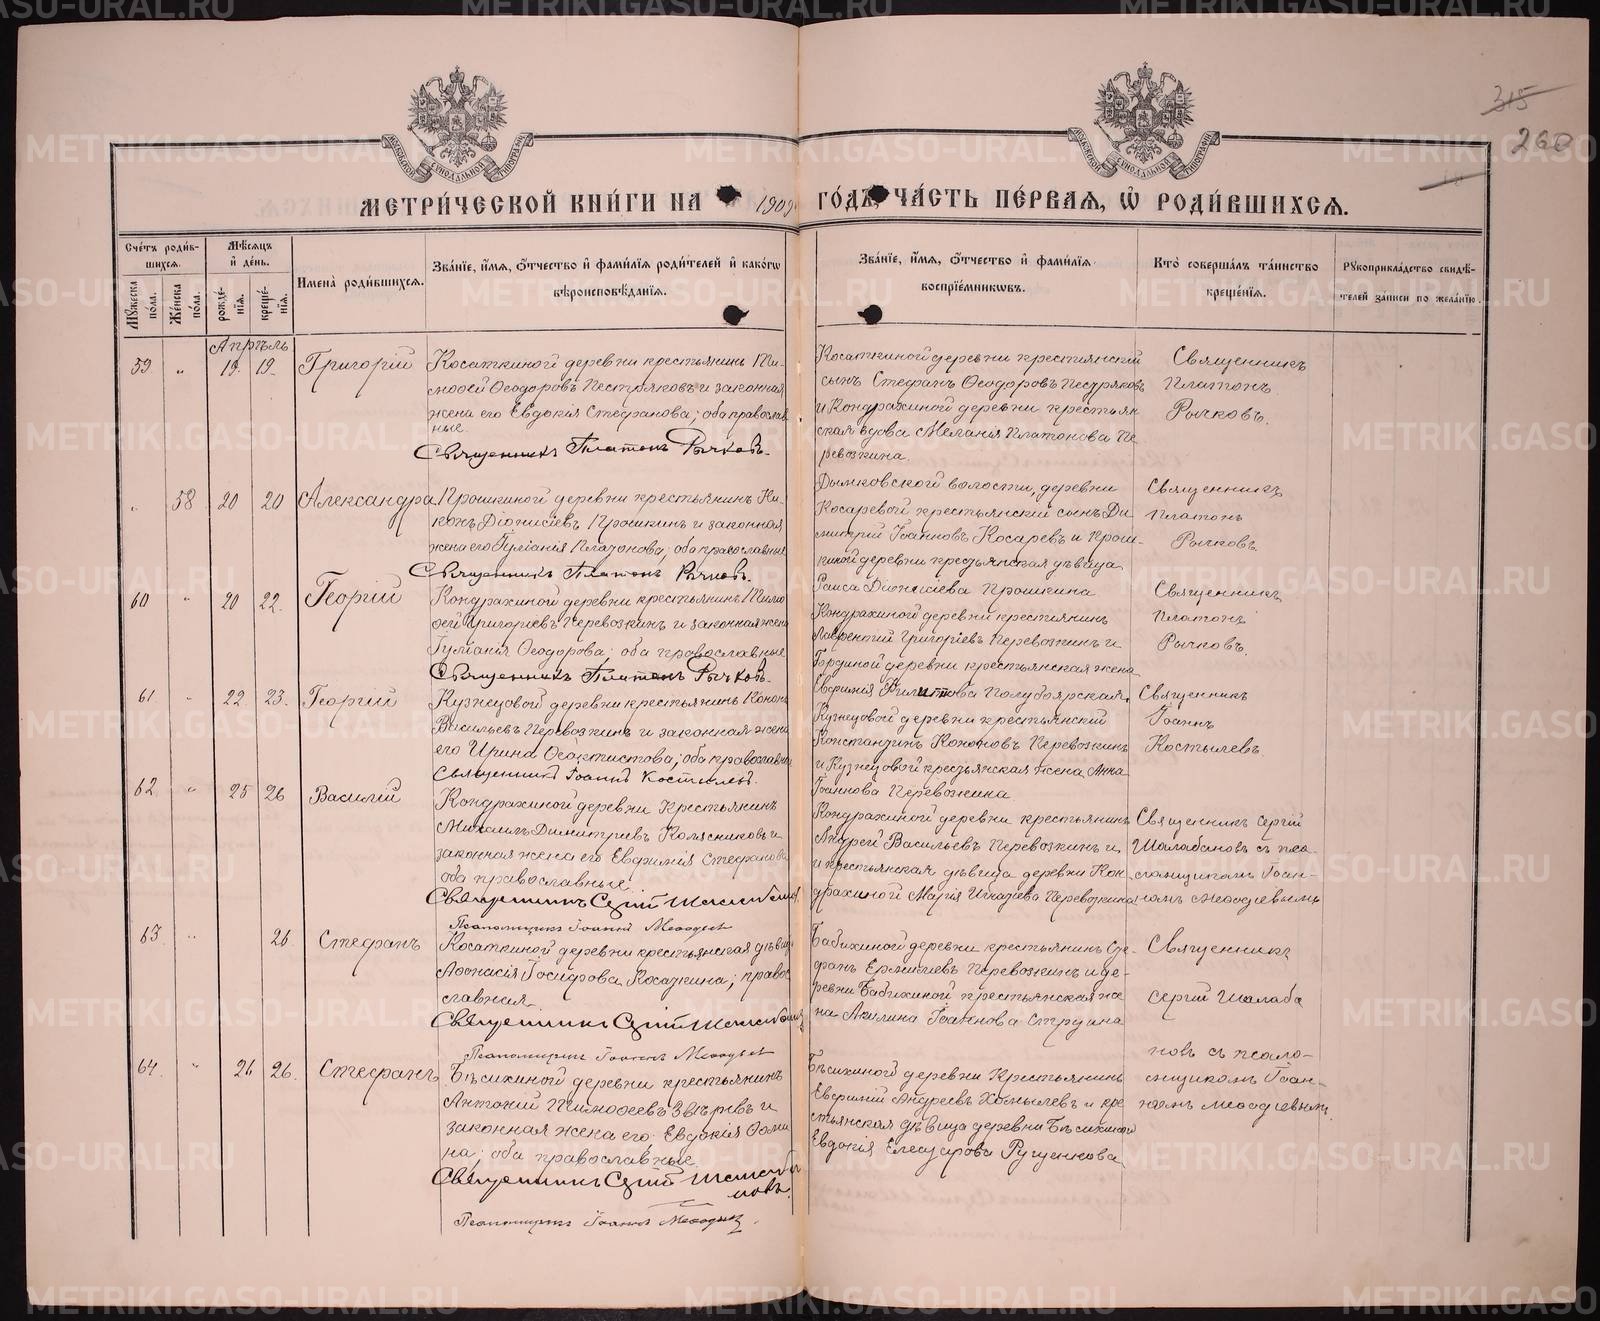 315
260
МЕТРИ́ЧЕСКОЙ КНИ́ГИ НА 1909 ГО́ДЪ, ЧА́СТЬ ПЕ́РВАѦ, Ѽ РОДИ́ВШИХСѦ.
Сче́тъ роди́вшихсѧ.
Мꙋ́жеска по́ла.
Же́нска по́ла.
Мѣ́сѧцъ и҆ де́нь.
рожде́нїѧ.
креще́нїѧ.
И҆мена̀ роди́вшихсѧ.
Зва́нїе, и҆́мѧ, ѻ҆́тчество и҆ фами́лїѧ роди́телей и҆ како́гѡ вѣроисповѣ́данїѧ.
Зва́нїе, и҆́мѧ, ѻ҆́тчество и҆ фами́лїѧ воспрїе́мникѡвъ.
Кто̀ соверша́лъ та́инство креще́нїѧ.
Рꙋкоприкла́дство свидѣ́телей за́писи по жела́нїю.
Апрѣль
59 " 19. 19. Григорій
Косаткиной деревни крестьянинъ Ти-
моѳей Ѳеодоровъ Пестряковъ и законная
жена его Евдокія Стефанова; оба православ
ные.
Священникъ Платонъ Рычковъ.
Косаткиной деревни крестьянскій
сынъ Стефанъ Ѳеодоровъ Пестряковъ
и Кондрахиной деревни крестьян
ская вдова Меланія Платонова Пе
ревозкина.
Священникъ
Платонъ
Рычковъ.
" 58 20 20 Александра
Прошкиной деревни крестьянинъ Ни-
конъ Діонисіевъ Прошкинъ и законная
жена его Іуліанія Платонова; оба православные
Священникъ Платонъ Рычковъ.
Дымковской волости, деревни
Косаревой крестьянскій сынъ Ди
митрій Іоанновъ Косаревъ и Прош-
киной деревни крестьянская дѣвица
Раиса Діонисіева Прошкина
Священникъ
Платонъ
Рычковъ.
60 " 20 22. Георгій
Кондрахиной деревни крестьянинъ Тимо
ѳей Григоріевъ Перевозкинъ и законная жена
Іуліанія Ѳеодорова; оба православные
Священникъ Платонъ Рычковъ.
Кондрахиной деревни крестьянинъ
Лаврентій Григоріевъ Перевозкинъ и
Гординой деревни крестьянская жена
Евфимія Филитова Полубоярская,
Священникъ
Платонъ
Рычковъ.
61 " 22 23. Георгій
Кузнецовой деревни крестьянинъ Кононъ
Васильевъ Перевозкинъ и законная жена
его Ирина Ѳеоктистова; оба православны
Священникъ Іоаннъ Костылевъ.
Кузнецовой деревни крестьянскій
Константинъ Кононовъ Перевозкинъ
и Кузнецовой крестьянская жена Анна
Іоаннова Перевозкина
Священникъ
Іоаннъ
Костылевъ
62 " 25 26 Василій
Кондрахиной деревни крестьянинъ
Михаилъ Димитріевъ Колясниковъ и
законная жена его Евфимія Стефанова
оба православные.
Священникъ Сергій Шалабановъ
Псаломщикъ Іоаннъ Меѳодіев
Кондрахиной деревни крестьянинъ
Андрей Васильевъ Перевозкинъ и
и крестьянская дѣвица деревни Кон-
драхиной Марія Игнатіева Перевозкина
Священникъ Сергій
Шалабановъ съ пса-
ломщикомъ Іоан-
номъ Меѳодіевымъ
63 " 26. Стефанъ
Косаткиной деревни крестьянская дѣвица
Аѳанасія Іосифова Косаткина; право
славная
Священникъ Сергій Шалабановъ
Псаломщикъ Іоаннъ Меѳодіев
Бабихиной деревни крестьянинъ Сте-
фанъ Ермиліевъ Перевозкинъ и де-
ревни Бабихиной крестьянская же
на Акилина Іоаннова
Священникъ
Сергій Шалаба
новъ съ псало-
мщикомъ Іоан-
номъ Меѳодіевымъ
64. " 26 26. Стефанъ
Бѣсихиной деревни крестьянинъ
Антоній Тимоѳеевъ Звѣревъ и
законная жена его, Евдокія Ѳоми
на; оба православные
Священникъ Сергій Шалаба
новъ.
Псаломщикъ Іоаннъ Меѳодіев.
Бѣсихиной деревни крестьянинъ
Евфимій Андреевъ Хомылевъ и кре
стьянская дѣвица деревни Бѣсихиной
Евдокія Елеазарова
METRIKI.GASO-URAL.RU